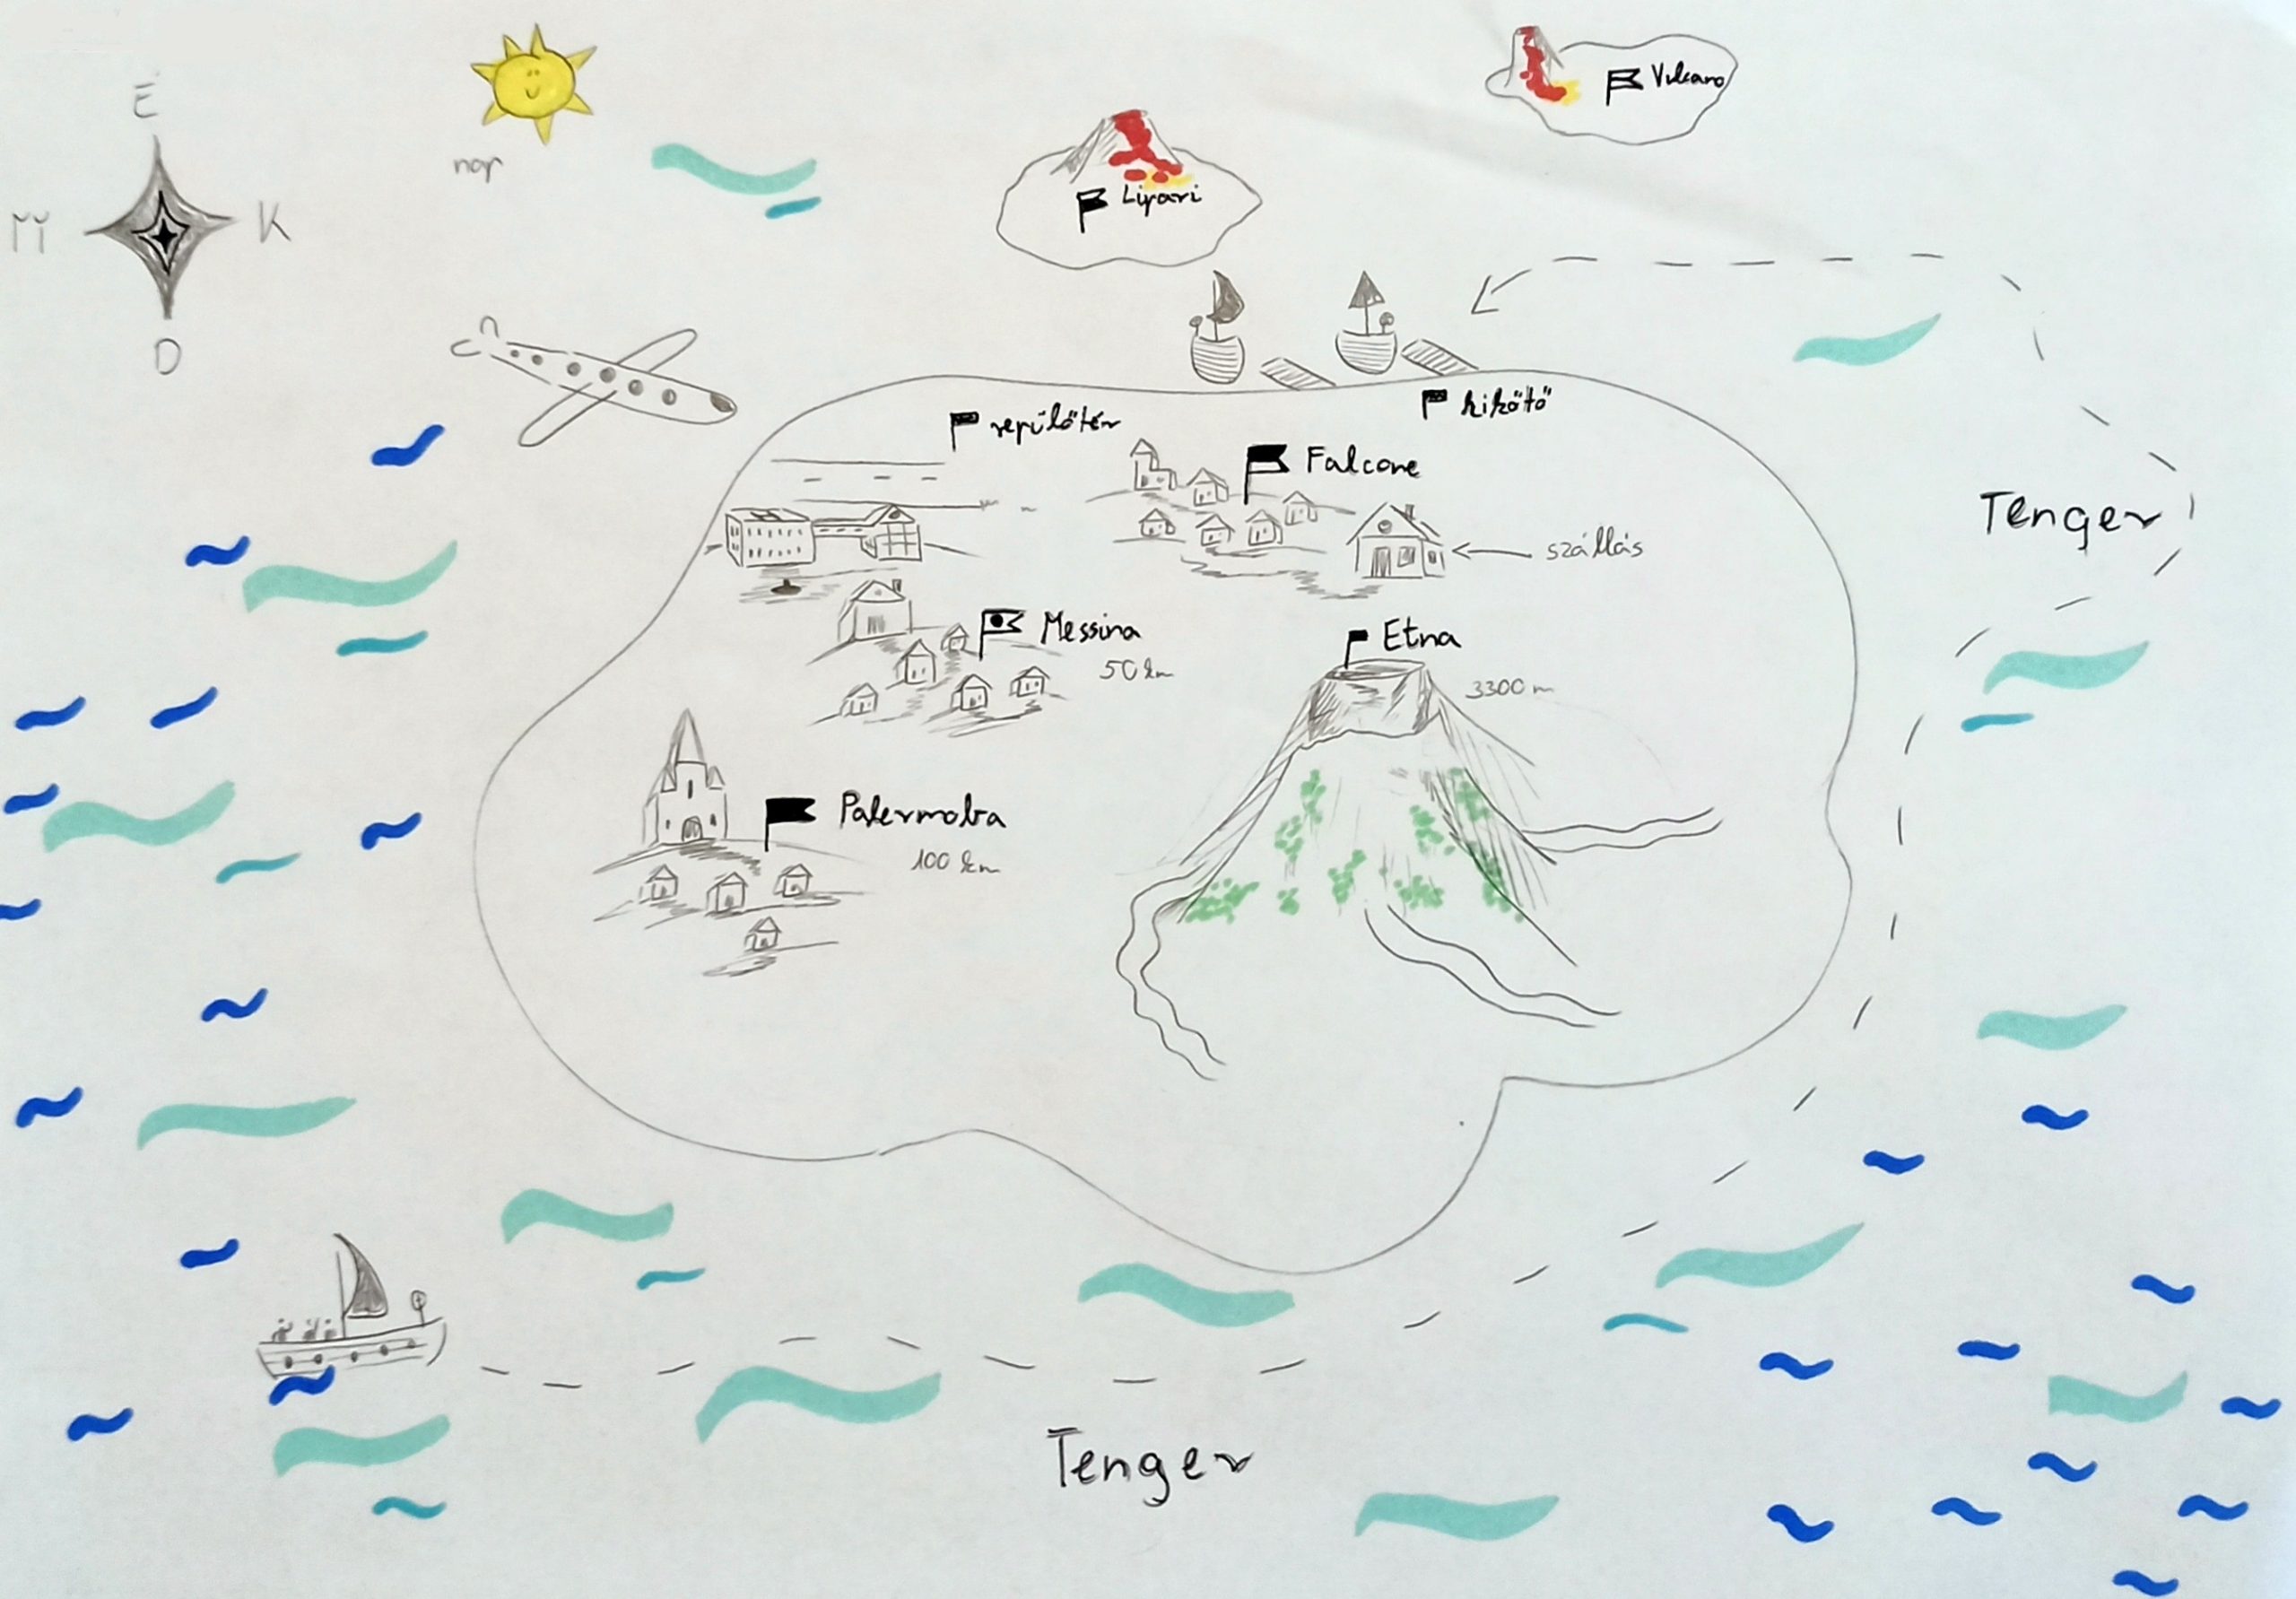 É
nap
M
K
D
Vulcano
Lipari
repülőtér
kikötő
Falcone
szállás
Tenger
Messina
50 km
Etna
3300 m
Palermoba
100 km
Tenger